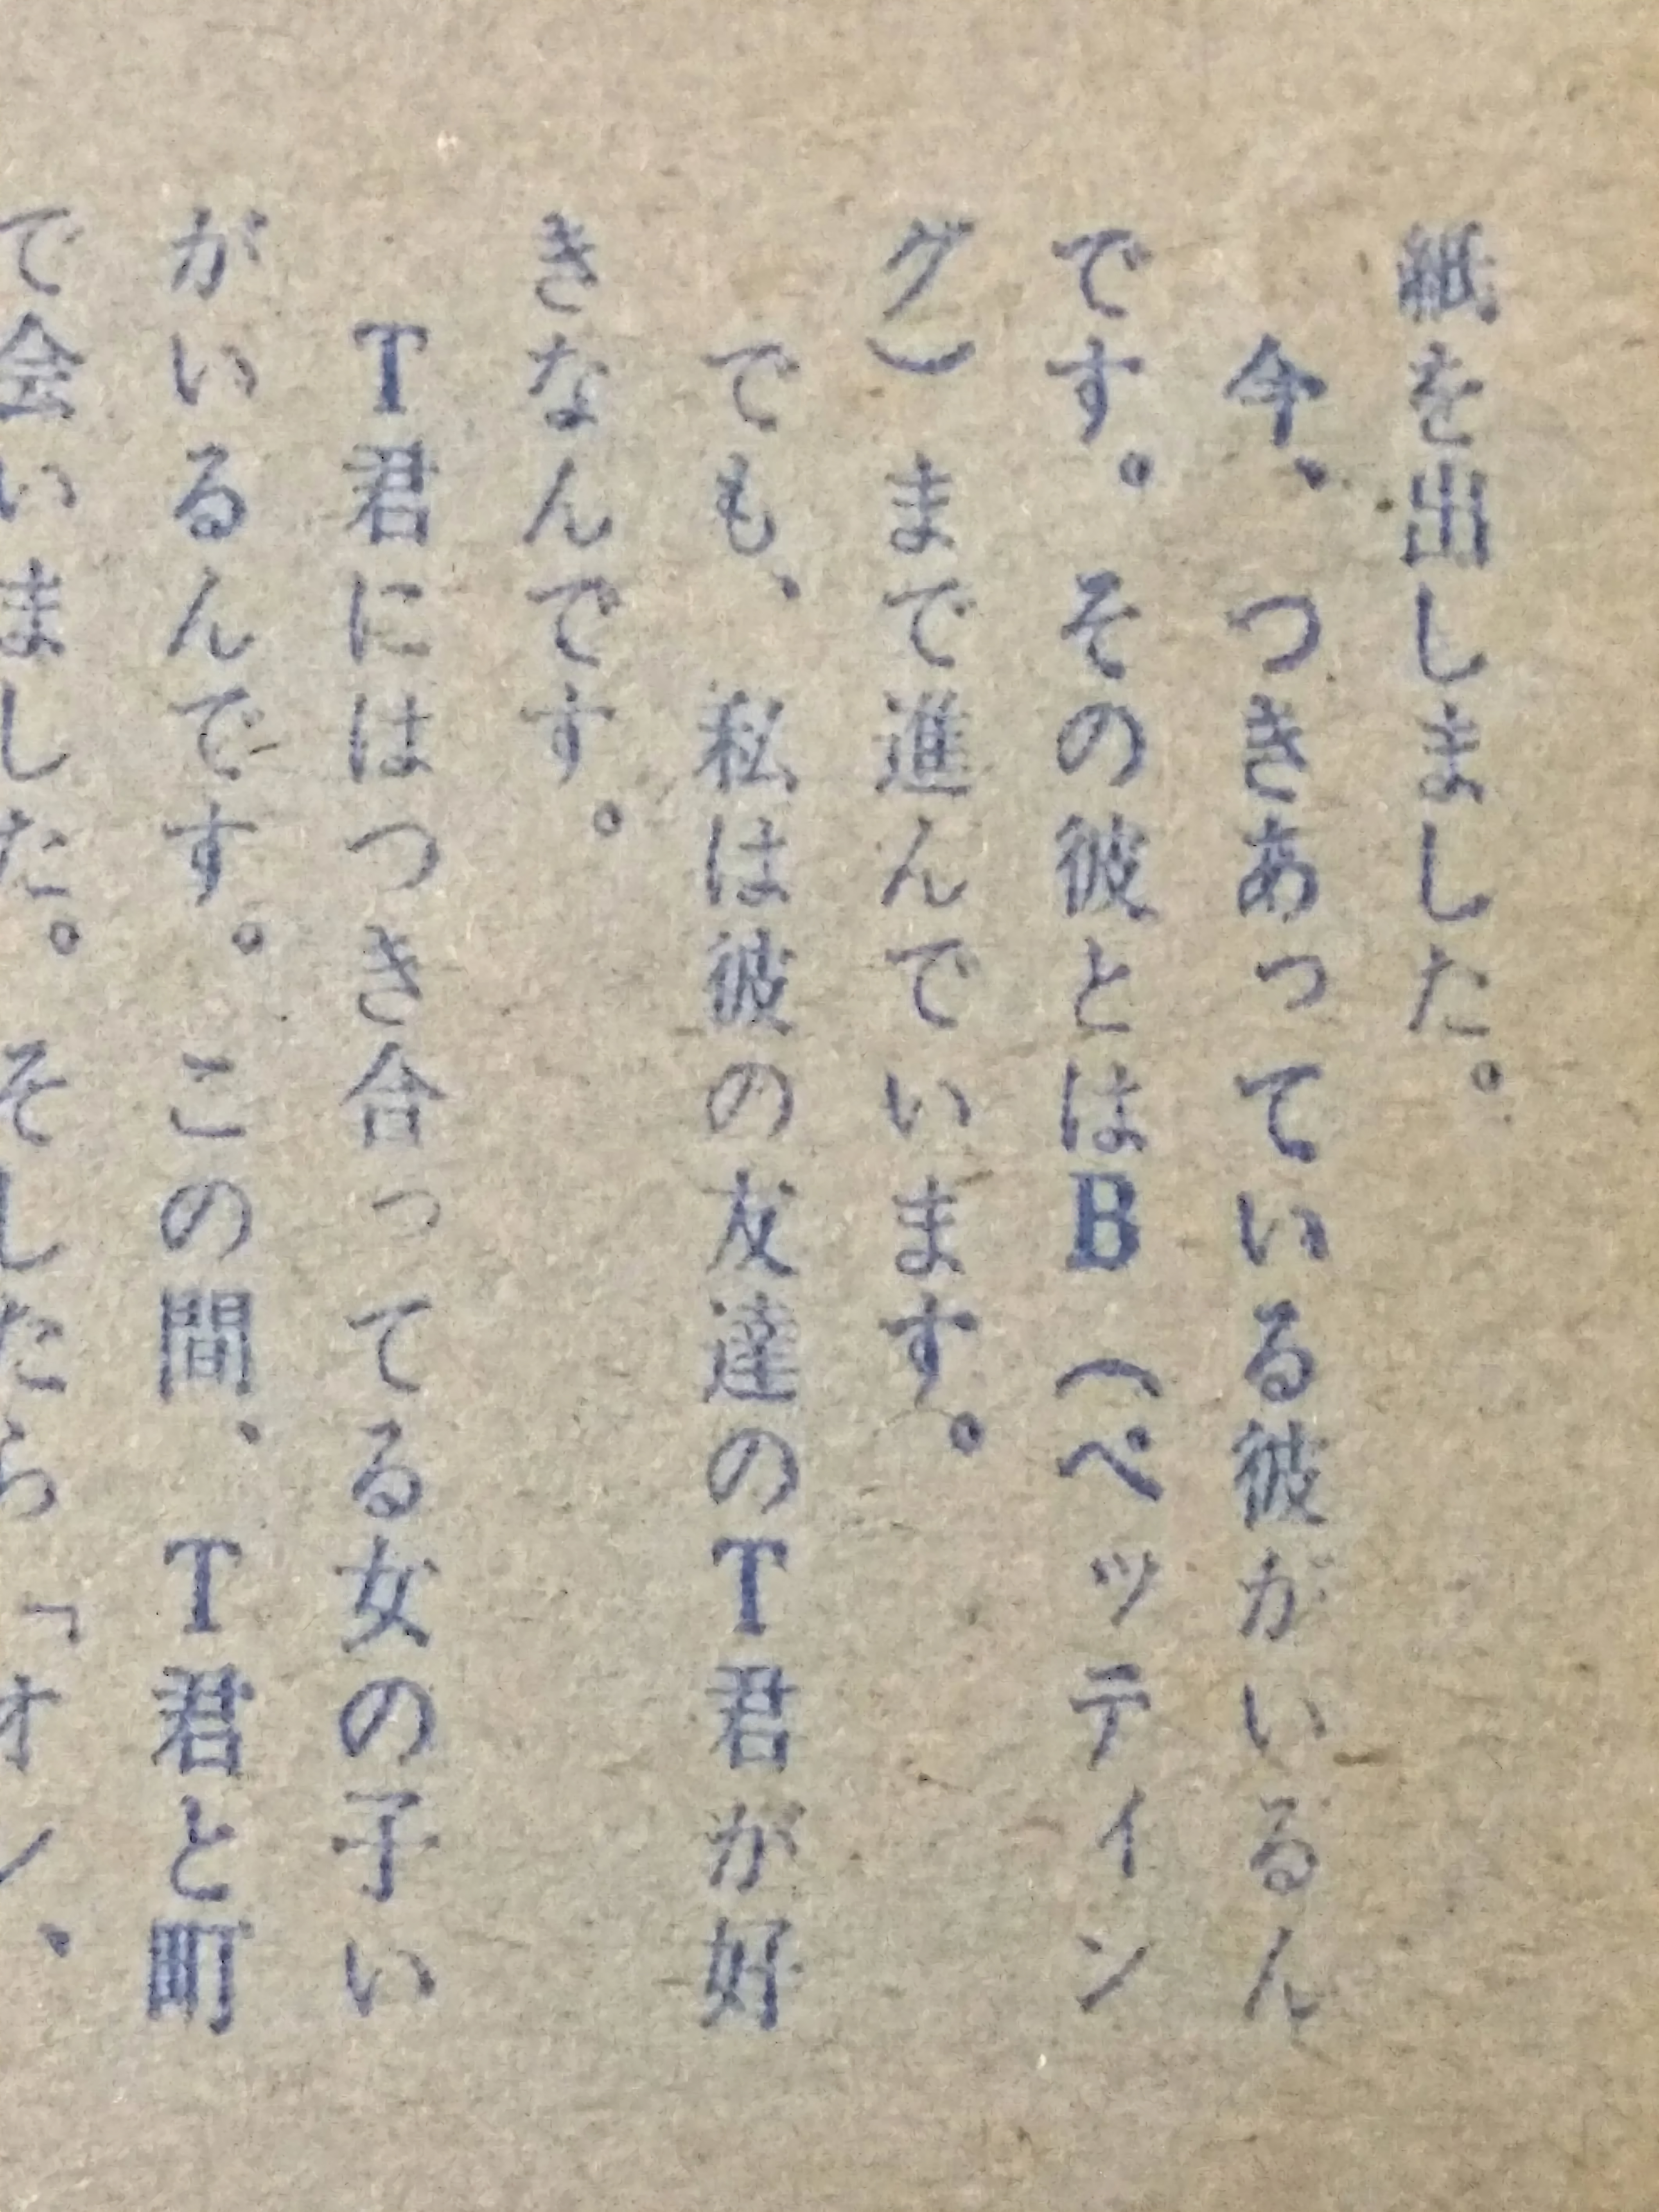 紙を出しました。
今、つきあっている彼がいるん
です。その彼とはB（ペッティン
グ）まで進んでいます。
でも、私は彼の友達のT君が好
きなんです。
T君にはつき合ってる女の子い
がいるんです。この間、T君と町
で会いました。そしたら「オレ、